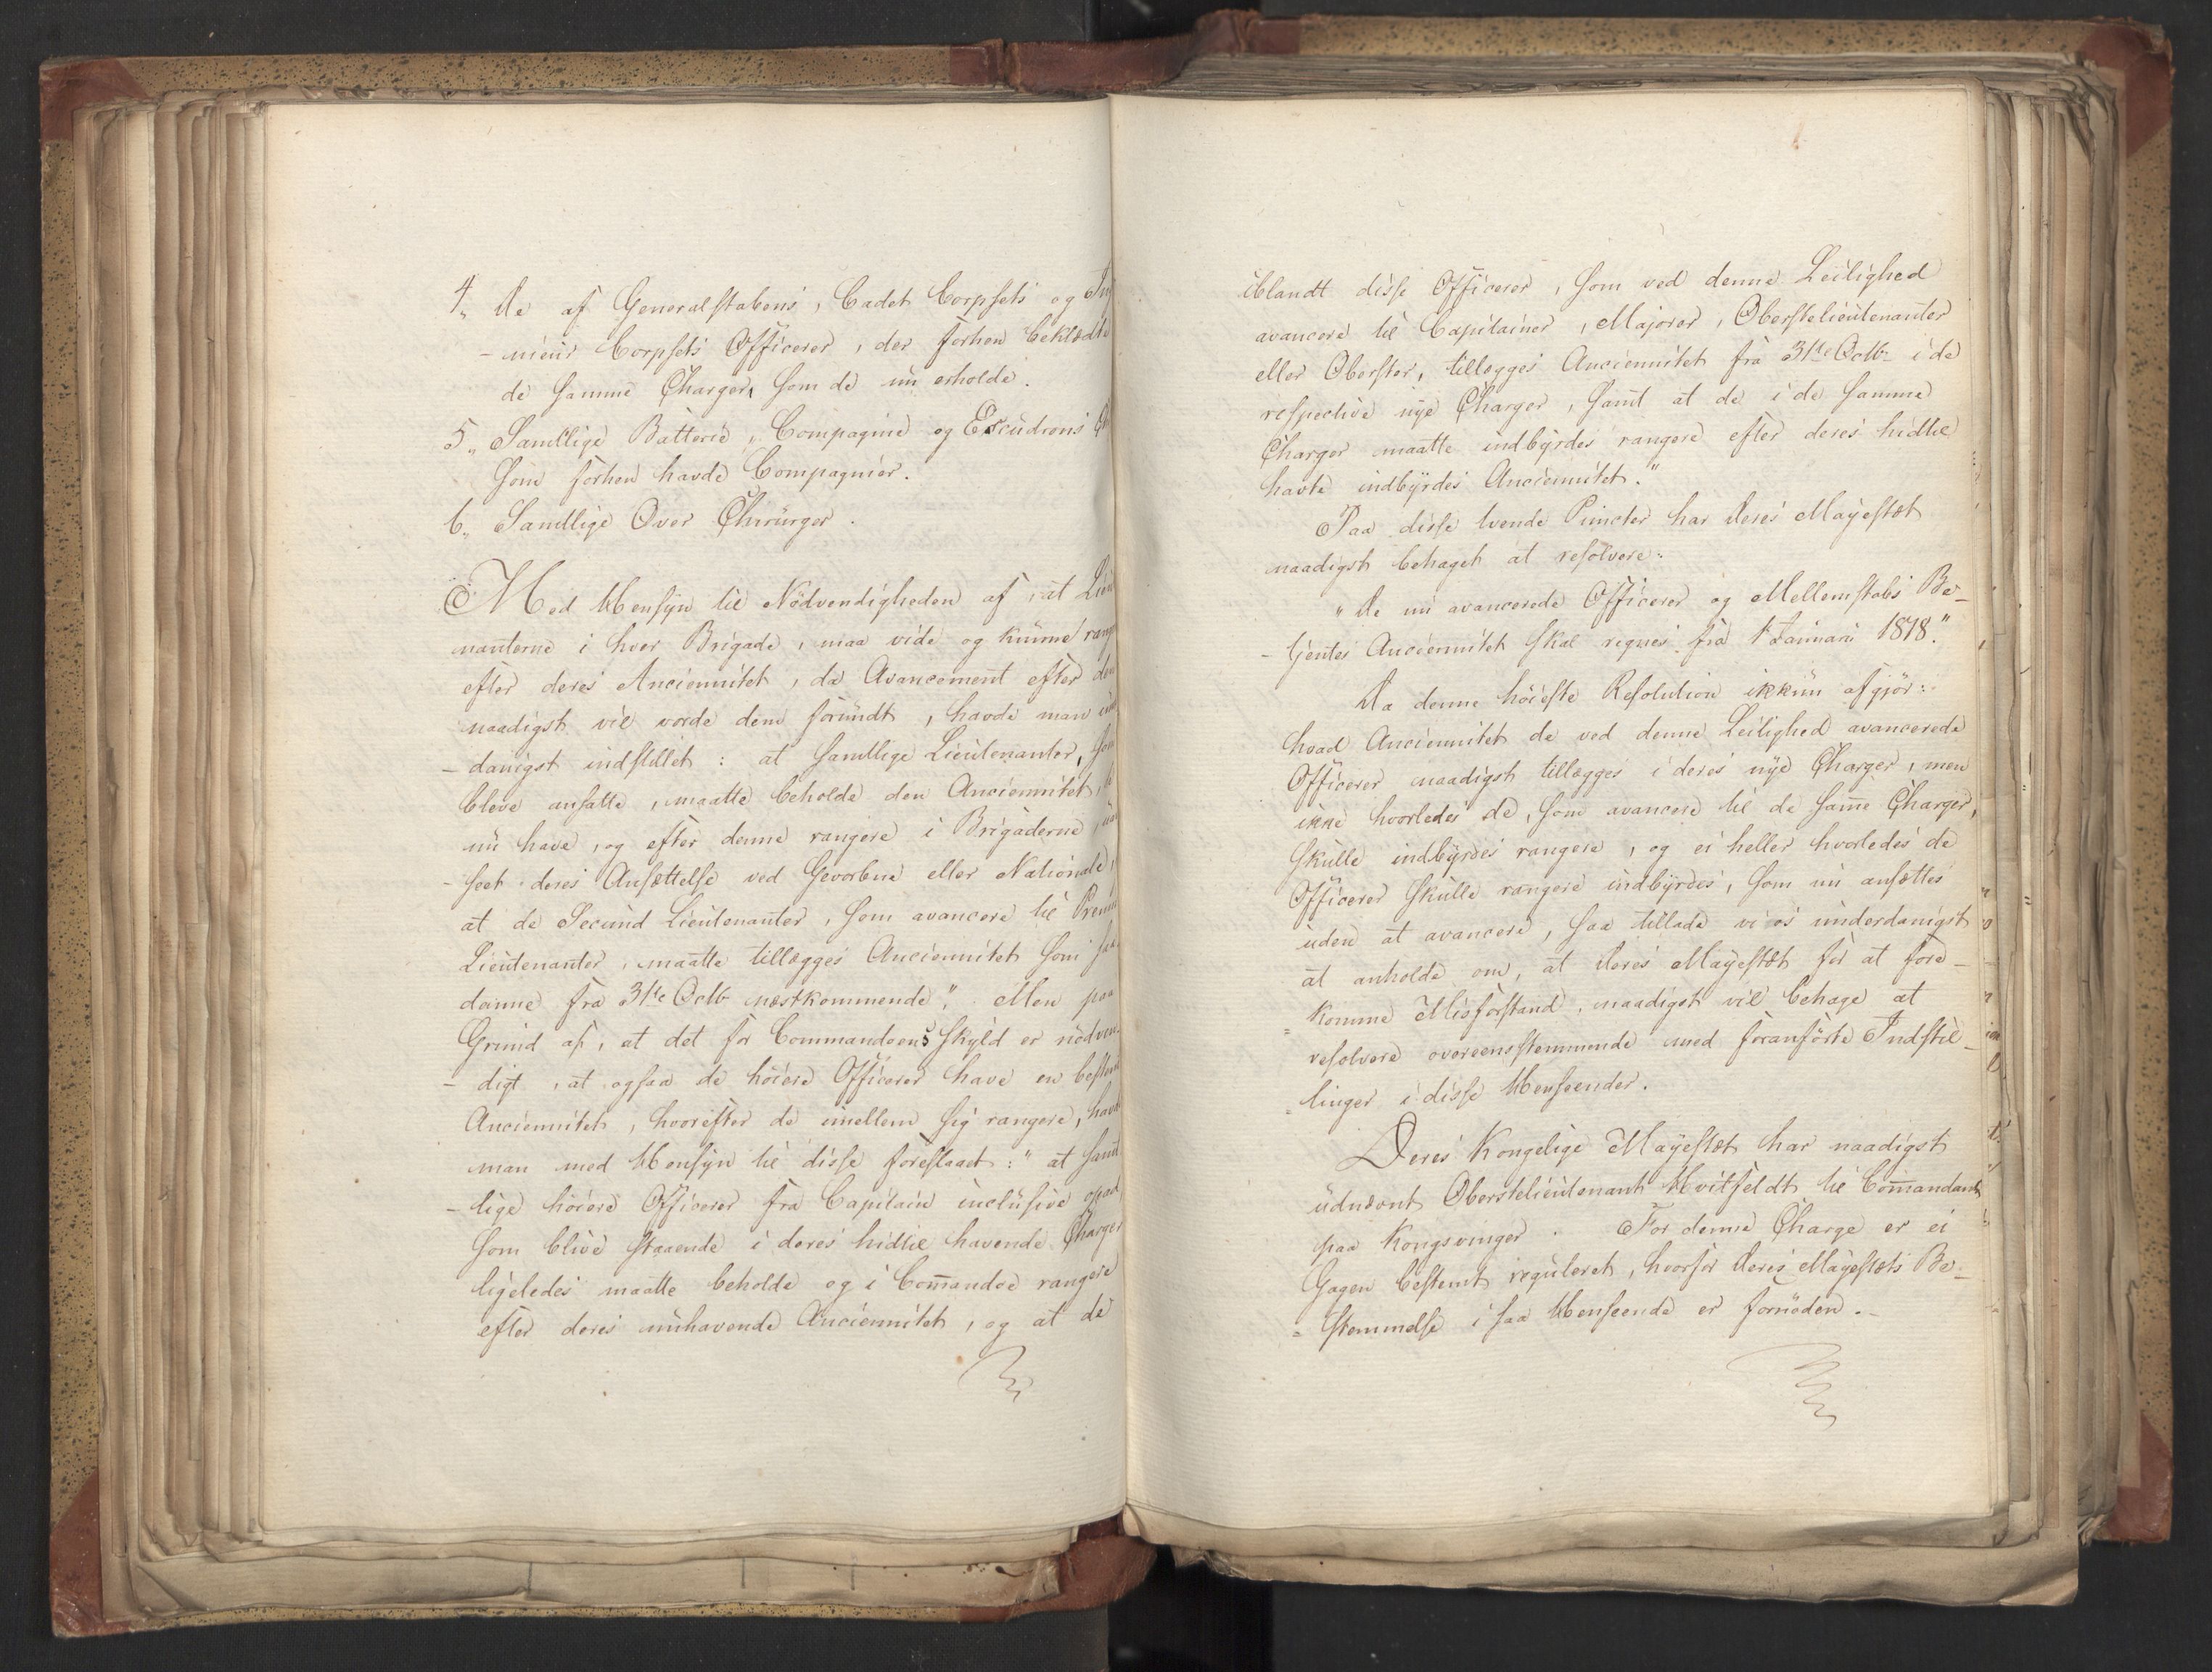 4, De af Generalstabens, Cadet Corpsets og In
- nieur Corpsets Officerer, der forhen beklædte
de samme Charger, som de nu erholde.
5, Samtlige Batterie, Compagnie og Escudrons Ch
som forhen havde Compagnier.
6, Samtlige Over Chirurger.
Med Hensyn til Nödvendigheden af, at Lieu
nanterne i hver Brigade, maa vide og kunne rang
efter deres Anciennitet, da Avancement efter den
naadigst vil vorde dem forundt, havde man un
- danigst indstillet: at samtlige Lieutenanter, som
bleve ansatte, maatte beholde den Anciennitet, de
nu have, og efter denne rangere i Brigaderne, uan
- seet deres Ansættelse ved Gevorbne eller Nationale,
at de Secund Lieutenanter, som avancere til Premi
Lieutenanter, maatte tillægges Anciennitet som saa
danne fra 31te Octb næstkommende". Men paa
Grund af, at det for Commandoens Skyld er nödven-
- digt, at ogsaa de höiere Officerer have en bestemt
Anciennitet, hvorefter de imellem sig rangere, havde
man med Hensyn til disse foreslaaet: "at samt
- lige höiere Officerer fra Capitain inclusive opad,
som blive staaende i deres hidtil havende Charger
ligeledes maatte beholde og i Com̅andoe rangere
efter deres nuhavende Anciennitet, og at de
iblandt disse Officerer, som ved denne Leilighed
avancere til Capitainer, Majorer, Oberstelieutenanter
eller Oberster, tillægges Anciennitet fra 31te Octb i de
respective nye Charger, samt at de i de samme
Charger maatte indbyrdes rangere efter deres hidtil
havte indbyrdes Anciennitet."
Paa disse tvende Puncter har Deres Mayestæt
naadigst behaget at resolvere:
"De nu avancerede Officerer og Mellemstabs Be-
- tjentes Anciennitet skal regnes fra 1 Januari 1818."
Da denne höieste Resolution ikkun afgjör:
hvad Anciennitet de ved denne Leilighed avancerede
Officerer naadigst tillægges i deres nye Charger, men
ikke hvorledes de, som avancere til de sam̅e Charger,
skulle indbyrdes rangere, og ei heller hvorledes de
Officerer skulle rangere indbyrdes, som nu ansættes
uden at avancere, saa tillade vi os underdanigst
at anholde om, at Deres Mayestæt for at fore-
= komme Misforstand, naadigst vil behage at
resolvere overeensstemmende med foranförte Indstil-
= linger i disse Henseender.
Deres Kongelige Mayestæt har naadigst
udnævnt Oberstelieutenant Hvitfeldt til Com̅andant
paa Kongsvinger. For denne Charge er ei
Gagen bestemt reguleret, hvorfor Deres Mayestæts Be-
= stemmelse i saa Henseende er fornöden.-